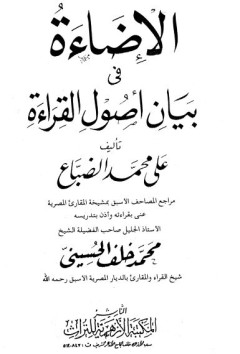 الإضاءة
فى
بيان أصول القراءة
تأليف
على محمد الضباع
مراجع المصاحف الاسبق بمشيخة المقارئ المصرية
عنى بقراءته وأذن بتدريسه
الاستاذ الجليل صاحب الفضيلة الشيخ
محمد خلف الحسينى
شيخ القراء والمقارئ بالديار المصرية الاسبق رحمه الله
الناشر
المكتبة الأزهرية للتراث